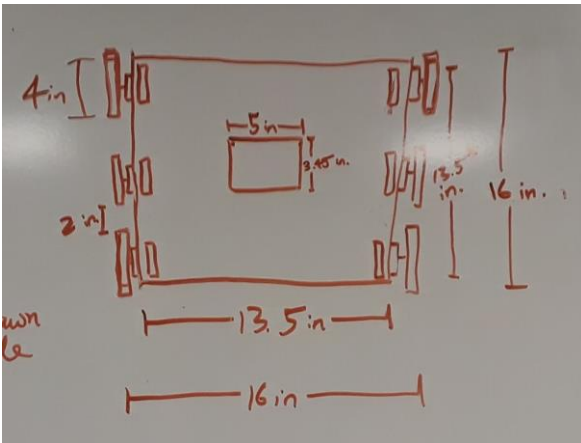 4in
5in
3.45 in.
13.5
in.
16 in.
2 in
13.5in
16in